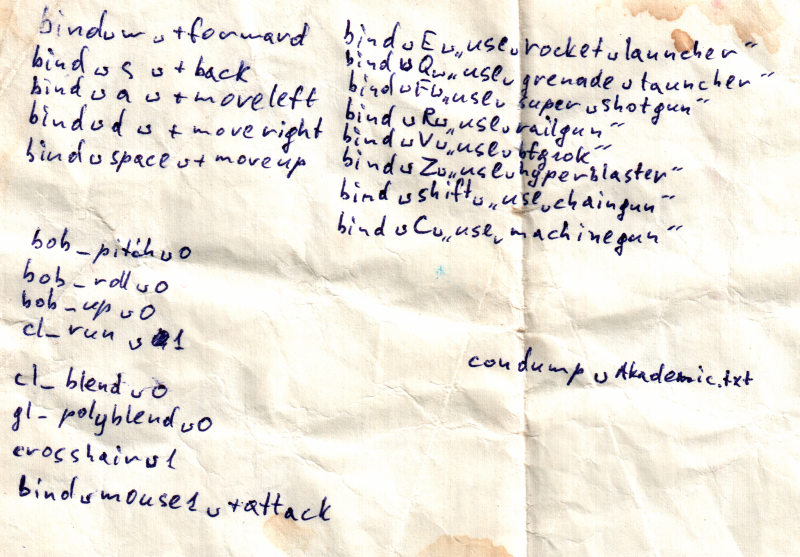 bind␣w␣+forward
bind␣s␣+back
bind␣a␣+moveleft
bind␣d␣+moveright
bind␣space␣+moveup
bob_pitch␣0
bob_roll␣0
bob_up␣0
cl_run␣1
cl_blend␣0
gl_polyblend␣0
crosshair␣1
bind␣mouse1␣+attack
bind␣E␣„use␣rocket␣launcher“
bind␣Q␣„use␣grenade␣launcher“
bind␣F␣„use␣super␣shotgun“
bind␣R␣„use␣railgun“
bind␣V␣„use␣bfg10k“
bind␣Z␣„use␣hyperblaster“
bind␣shift␣„use␣chaingun“
bind␣C␣„use␣machinegun“
condump␣Akademic.txt